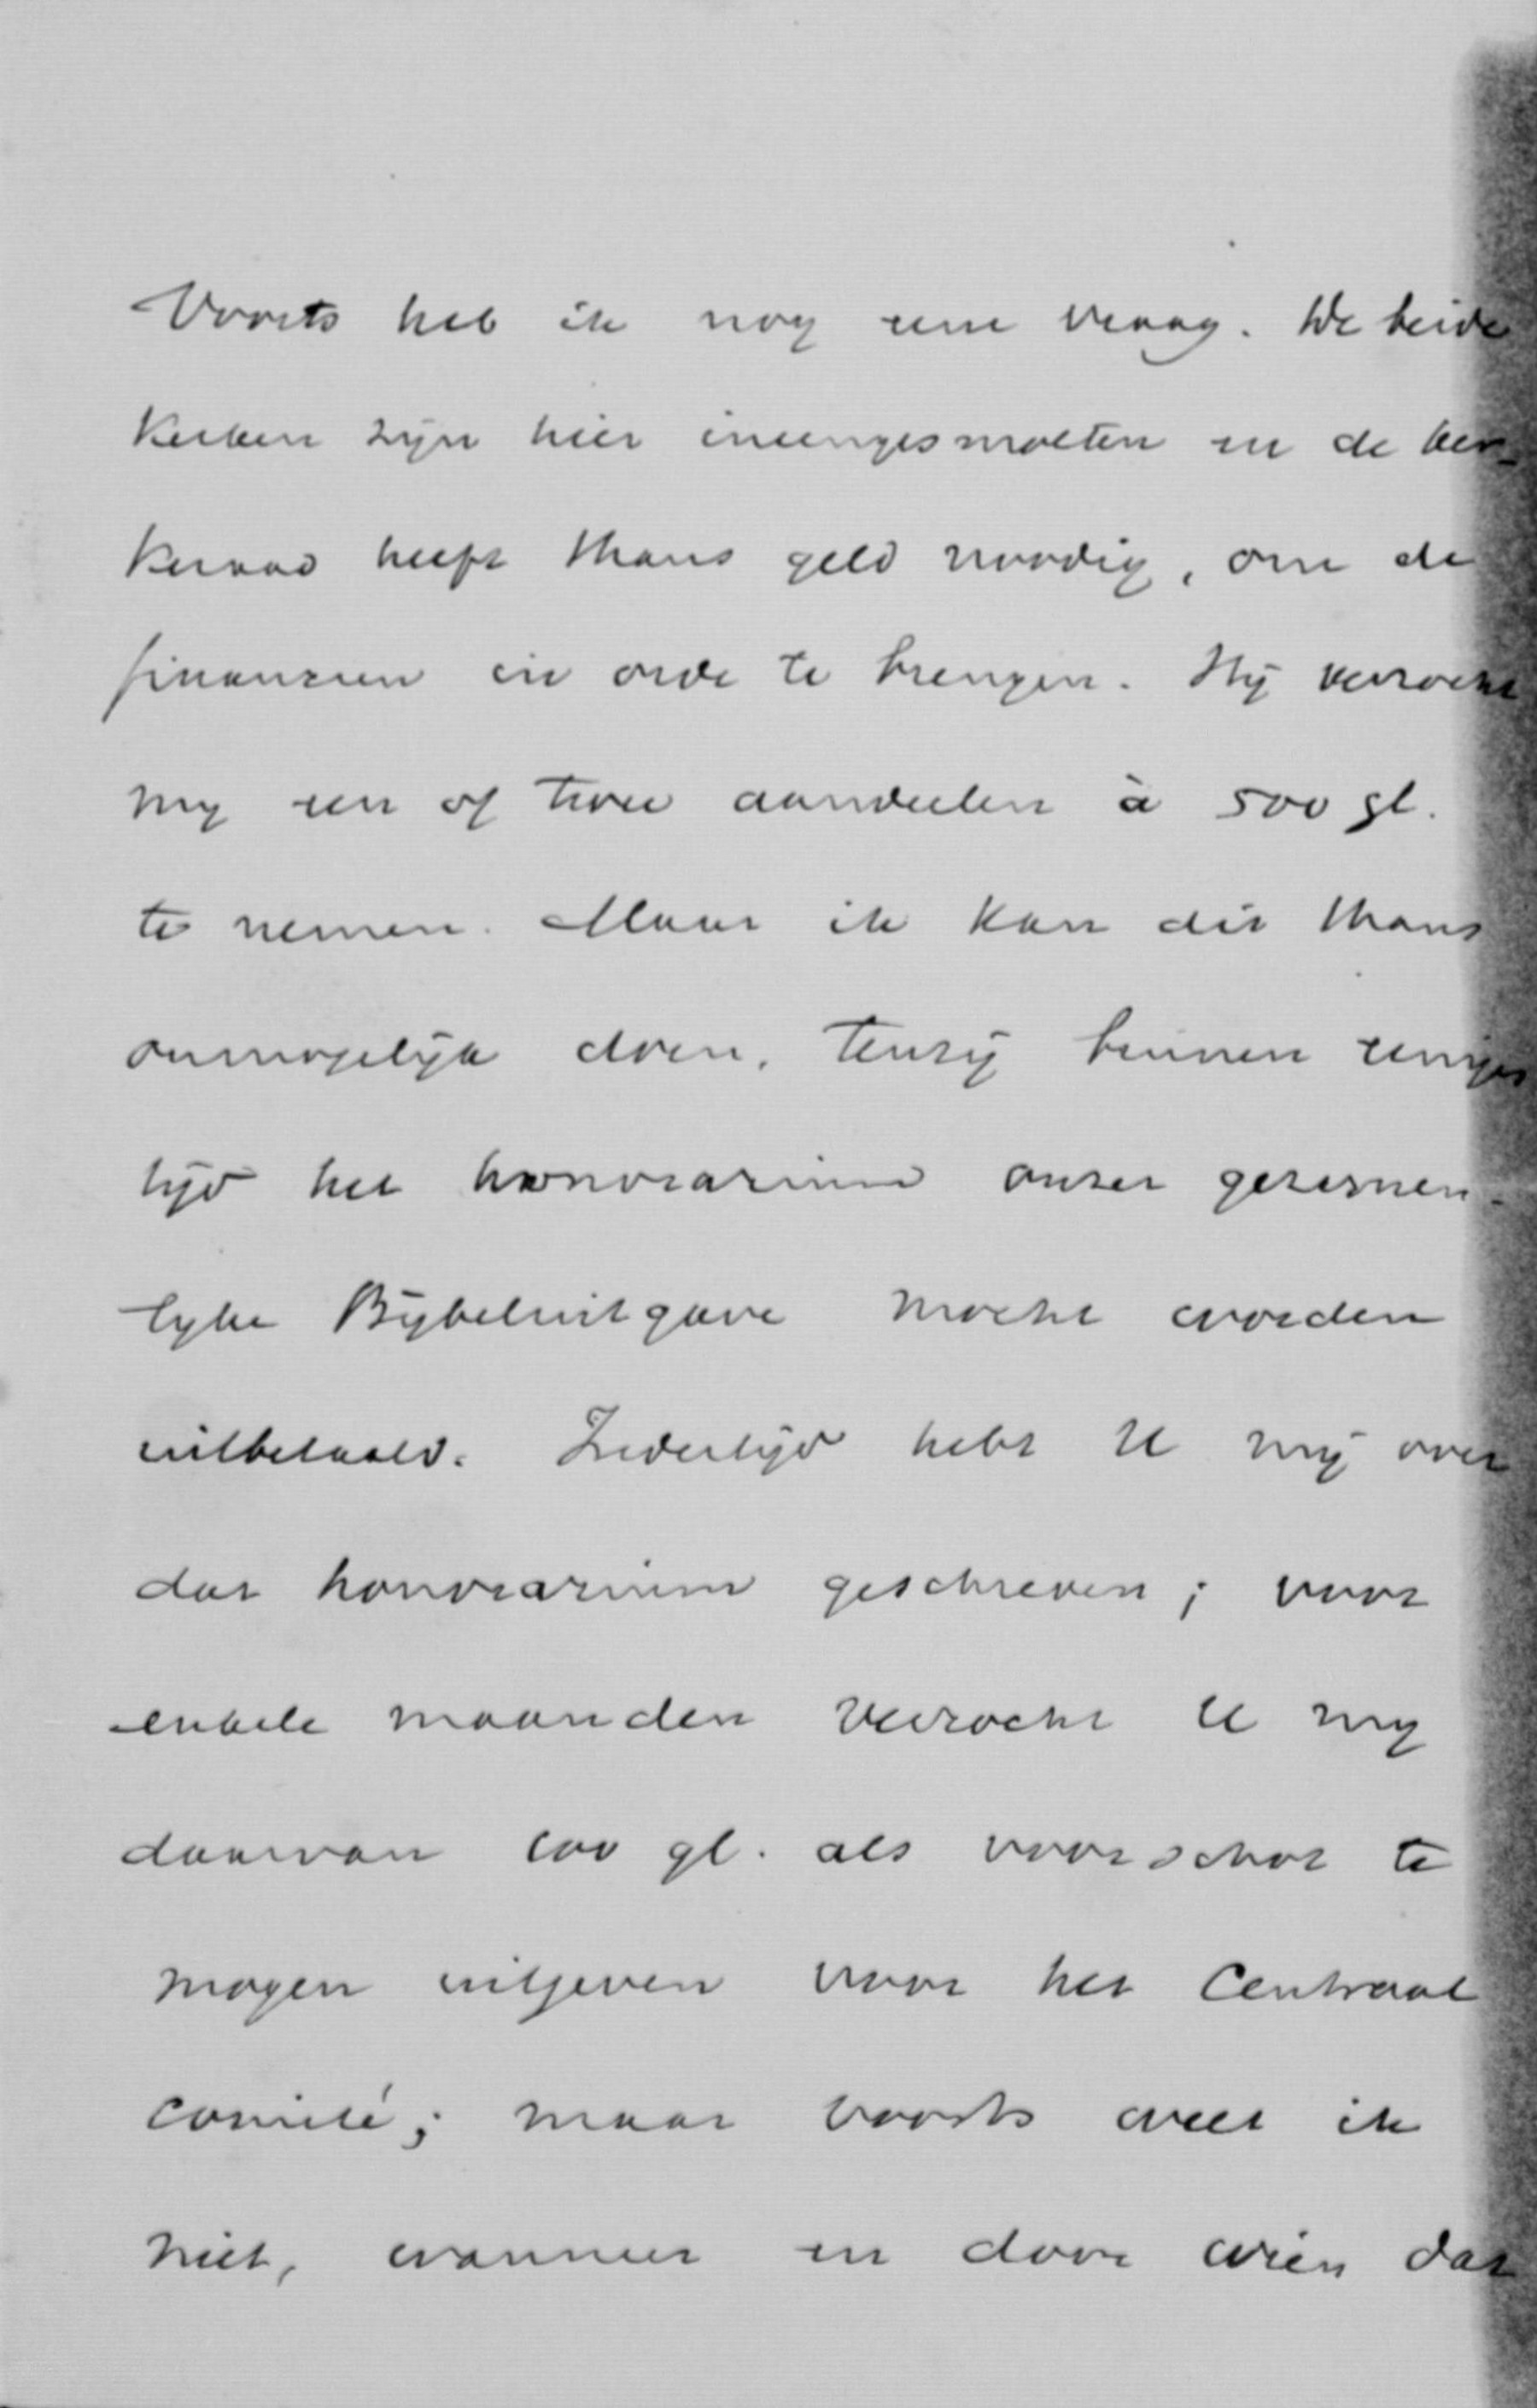 Voorts heb ik nog eene vraag. De beide
kerken zijn hier ineengesmolten en de ker-
keraad heeft thans geld noodig, om de
financien in orde te brengen. Hij verzocht
mij een of twee aandeelen à 500 gl.
te nemen. Maar ik kan dit thans
onmogelijk doen, tenzij binnen eenigen
tijd het honorarium onzer gezamen-
lijke Bijbeluitgave mocht worden
uitbetaald. Indertijd hebt U mij over
dat honorarium geschreven; voor
enkele maanden verzocht U mij
daarvan 100 gl. als voorschot te
mogen uitgeven voor het Centraal
comité; maar voorts weet ik
niet, wanneer en door wien dat